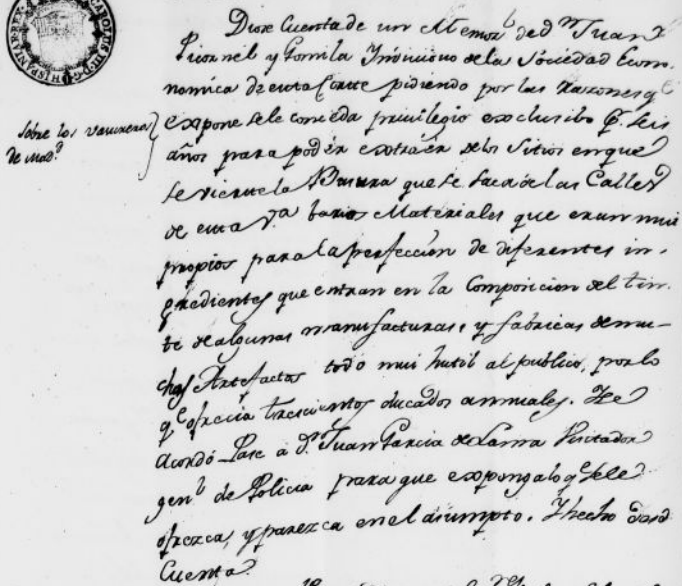 CAROLUS III. D. G. HISPANIAR. REX
Diose Cuenta de un Memor.l de d.n Juan
Picornel y Gomila Yndividuo de la Sociedad Econo-
nomica de esta Corte pidiendo por las razones q.e
Sobre los vasureros
de Mad.d
expone se le conceda privilegio exclusibo p.r seis
años para poder extraér de los Sitios en que
se vierte la Basura que se saca de las Calles
de esta V.a barios Materiales que eran mui
propios para la perfeccion de diferentes in-
gredientes que entran en la Composicion del tin-
te de algunas manufacturas, y fabricas de mu-
chos Artefactos todo mui hutil al publico, por lo
q.e ofrecia trescientos ducados annuales. Se
Acordó Pase á D.n Juan Garcia de Lama Visitador
gen.l de Policia para que exponga lo q.e se le
ofrezca, y parezca en el asumpto. Y hecho dese
Cuenta